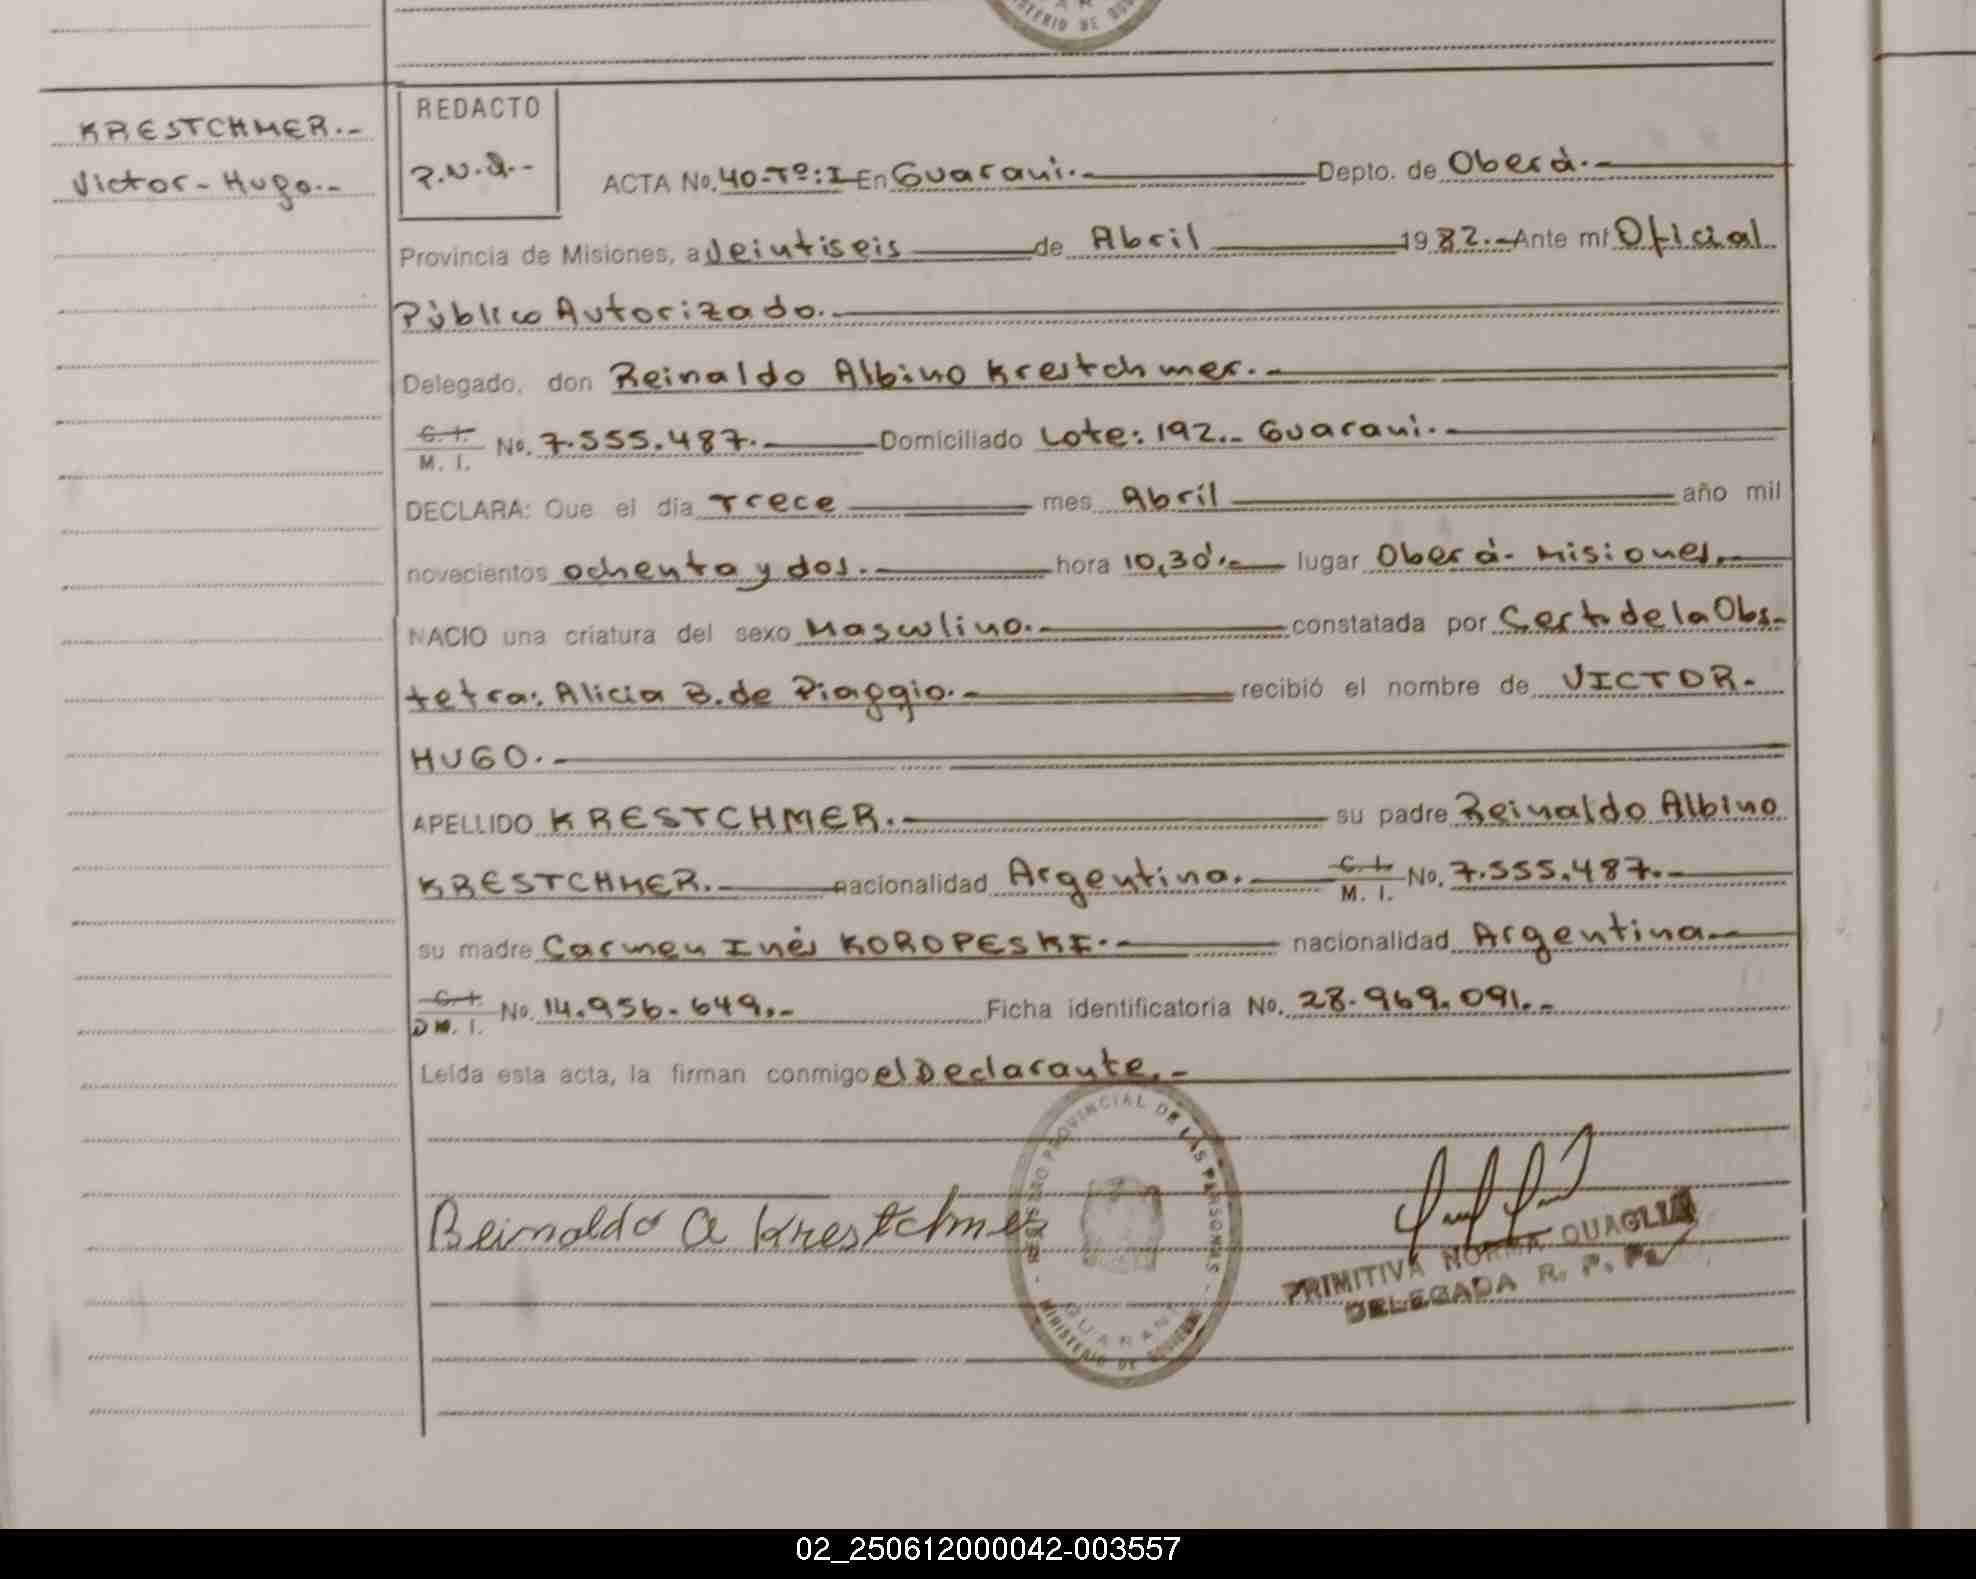 KRESTCHMER.-
Victor - Hugo.-
REDACTO
P.N.Q.-
ACTA No. 40-Tº:I En Guaraní.- Depto. de Oberá.-
Provincia de Misiones, a Veintiseis de Abril 1982.- Ante mí Oficial
Público Autorizado.-
Delegado, don Reinaldo Albino Krestchmer.-
C. I.
M. I. No. 7.555.487.- Domiciliado Lote: 192.- Guaraní.-
DECLARA: Que el día Trece mes Abril año mil
novecientos ochenta y dos.- hora 10,30'.- lugar Oberá- Misiones.-
NACIO una criatura del sexo Masculino.- constatada por Cert. de la Obs-
tetra: Alicia B. de Piaggio.- recibió el nombre de VICTOR-
HUGO.-
APELLIDO KRESTCHMER.- su padre Reinaldo Albino
KRESTCHMER.- nacionalidad Argentina.- C. I.
M. I. No. 7.555.487.-
su madre Carmen Inés KOROPESKI.- nacionalidad Argentina.-
C. I.
D M. I. No. 14.956.649.- Ficha identificatoria No. 28.969.091.-
Leída esta acta, la firman conmigo el Declarante.-
Reinaldo A Krestchmer
REGISTRO PROVINCIAL DE LAS PERSONAS
GUARANI
MINISTERIO DE GOBIERNO
PRIMITIVA NORMA QUAGLIA
DELEGADA R. P. P.
02_250612000042-003557